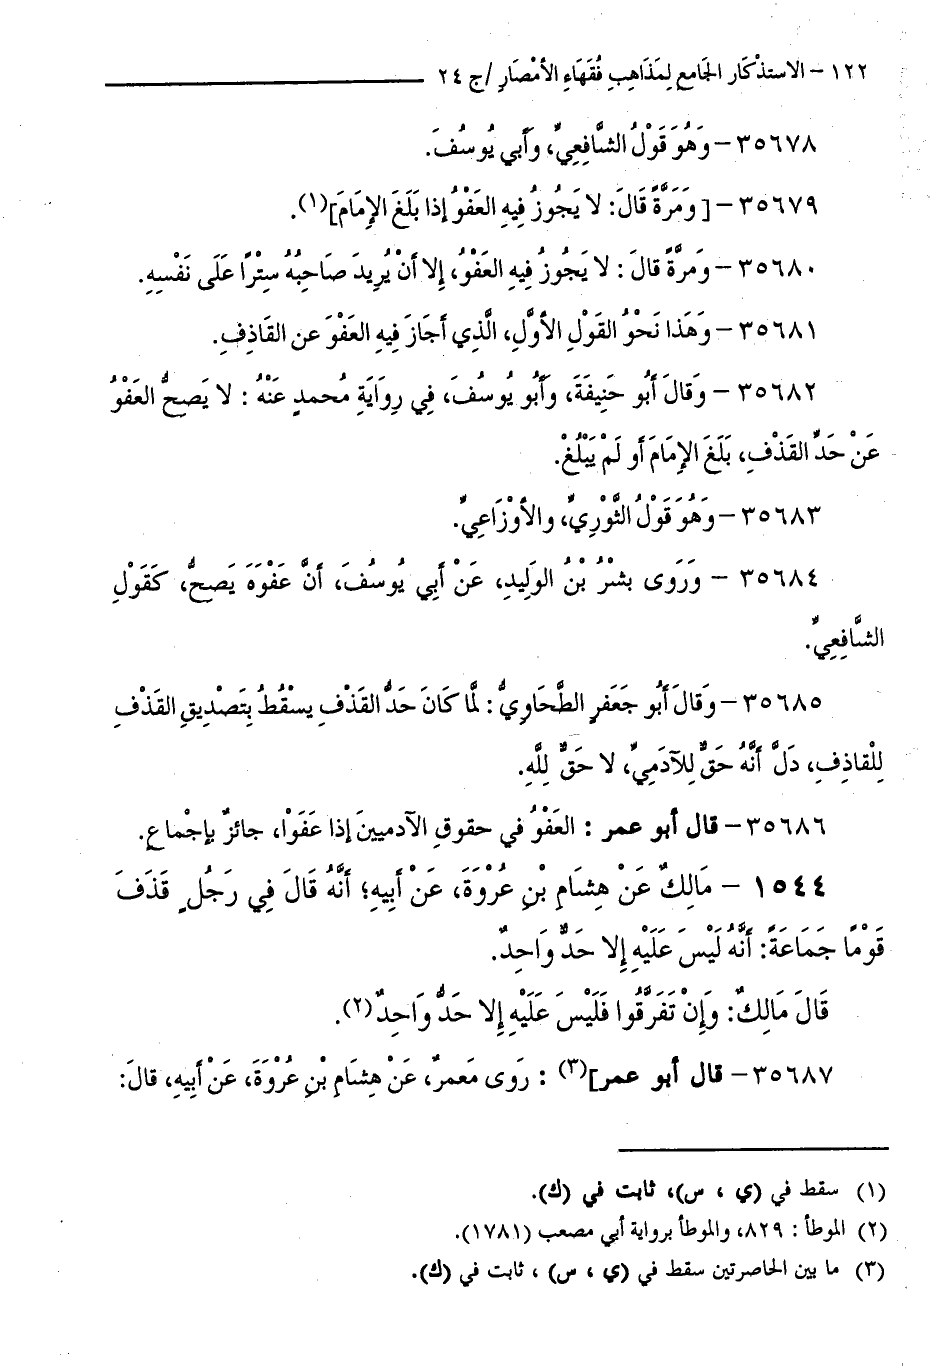 ١٢٢ – الاستذْكَار الجَامع لِمَذَاهِبِ فُقَهَاءِ الأَمْصَارِ / ج ٢٤
٣٥٦٧٨ – وَهُوَ قَوْلُ الشَّافِعِيِّ، وَأَبي يُوسُفَ.
٣٥٦٧٩ – [ وَمَرَّةً قَالَ: لا يَجُوزُ فِيهِ العَفْوُ إذا بَلَغَ الإِمَامَ](١).
٣٥٦٨٠ – وَمَرَّةً قَالَ : لا يَجُوزُ فِيهِ العَفْوُ، إِلا أَنْ يُرِيدَ صَاحِبُهُ سِتْرًا عَلَى نَفْسِهِ.
٣٥٦٨١ – وَهَذا نَحْوُ القَوْلِ الأَوَّلِ، الَّذي أَجَازَ فِيهِ العَفْوَ عن القَاذِفِ.
٣٥٦٨٢ – وَقَالَ أَبُو حَنِيفَةَ، وَأَبُو يُوسُفَ، فِي رِوَايَةِ مُحمدٍ عَنْهُ : لا يَصِحُّ العَفْوُ
عَنْ حَدِّ القَذْفِ، بَلَغَ الإِمَامَ أَو لَمْ يَبْلُغْ.
٣٥٦٨٣ – وَهُوَ قَوْلُ الثَّوْرِيِّ، والأَوْزَاعِيِّ.
٣٥٦٨٤ – وَرَوَى بشْرُ بْنُ الوَلِيدِ، عَنْ أَبِي يُوسُفَ، أَنَّ عَفْوَهَ يَصِحُّ، كَقَوْلِ
الشَّافِعِيِّ.
٣٥٦٨٥ – وَقَالَ أَبُو جَعَفَرٍ الطَّحَاوِيُّ : لَمَّا كَانَ حَدُّ القَذْفِ يسْقُطُ بِتَصْدِيقِ القَذْفِ
لِلْقاذِفِ، دَلَّ أَنَّهُ حَقٌّ لِلآدَمِيِّ، لا حَقٌّ لِلَّهِ.
٣٥٦٨٦ – قال أبو عمر : العَفْوُ في حقوقِ الآدميينَ إذا عَفَوْا، جائزٌ بإجْماعٍ.
١٥٤٤ – مَالِكٌ عَنْ هِشَامِ بْنِ عُرْوَةَ، عَنْ أَبِيهِ؛ أَنَّهُ قَالَ فِي رَجُلٍ قَذَفَ
قَوْمًا جَمَاعَةً: أَنَّهُ لَيْسَ عَلَيْهِ إِلا حَدٌّ وَاحِدٌ.
قَالَ مَالِكٌ: وَإِنْ تَفَرَّقُوا فَلَيْسَ عَلَيْهِ إِلا حَدٌّ وَاحِدٌ(٢).
٣٥٦٨٧ – قال أبو عمر](٣) : رَوى مَعَمرٌ، عَنْ هِشَامِ بْنِ عُرْوَةَ، عَنْ أَبِيهِ، قالَ:
(١) سقط في (ي ، س)، ثابت في (ك).
(٢) الموطأ : ٨٢٩، والموطأ برواية أبي مصعب (١٧٨١).
(٣) ما بين الحاصرتين سقط في (ي ، س) ، ثابت في (ك).